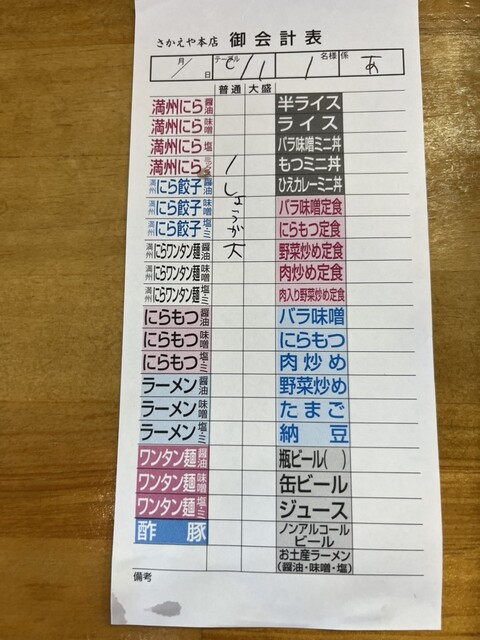 さかえや本店 御会計表
月 日 テーブル 1 名様 係 あ
普通 大盛
満州にら 醤油 半ライス
満州にら 味噌 ライス
満州にら 塩 バラ味噌ミニ丼
満州にら 1 もつミニ丼
満州 にら餃子 醤油 しょうが大 ひえカレーミニ丼
満州 にら餃子 味噌 バラ味噌定食
満州 にら餃子 塩・ミ にらもつ定食
満州 にらワンタン麺 醤油 野菜炒め定食
満州 にらワンタン麺 味噌 肉炒め定食
満州 にらワンタン麺 塩・ミ 肉入り野菜炒め定食
にらもつ 醤油 バラ味噌
にらもつ 味噌 にらもつ
にらもつ 塩・ミ 肉炒め
ラーメン 醤油 野菜炒め
ラーメン 味噌 たまご
ラーメン 塩・ミ 納豆
ワンタン麺 醤油 瓶ビール( )
ワンタン麺 味噌 缶ビール
ワンタン麺 塩・ミ ジュース
酢豚 ノンアルコール
ビール
お土産ラーメン
(醤油・味噌・塩)
備考